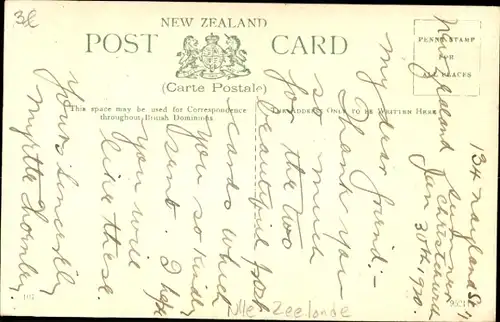 3€
NEW ZEALAND
POST CARD
(Carte Postale)
This space may be used for Correspondence
throughout British Dominions
THE ADDRESS ONLY TO BE WRITTEN HERE
PENNY STAMP
PLACES
134 Nayland St
Sumner
Christchurch
New Zealand
Jan 30th, 1920.
My dear friend:-
Thank you
so much
for the two
beautiful post
cards which
you so kindly
sent. I hope
you will
like these.
Yours Sincerely
Myrtle Hornley.
Nlle Zeelande